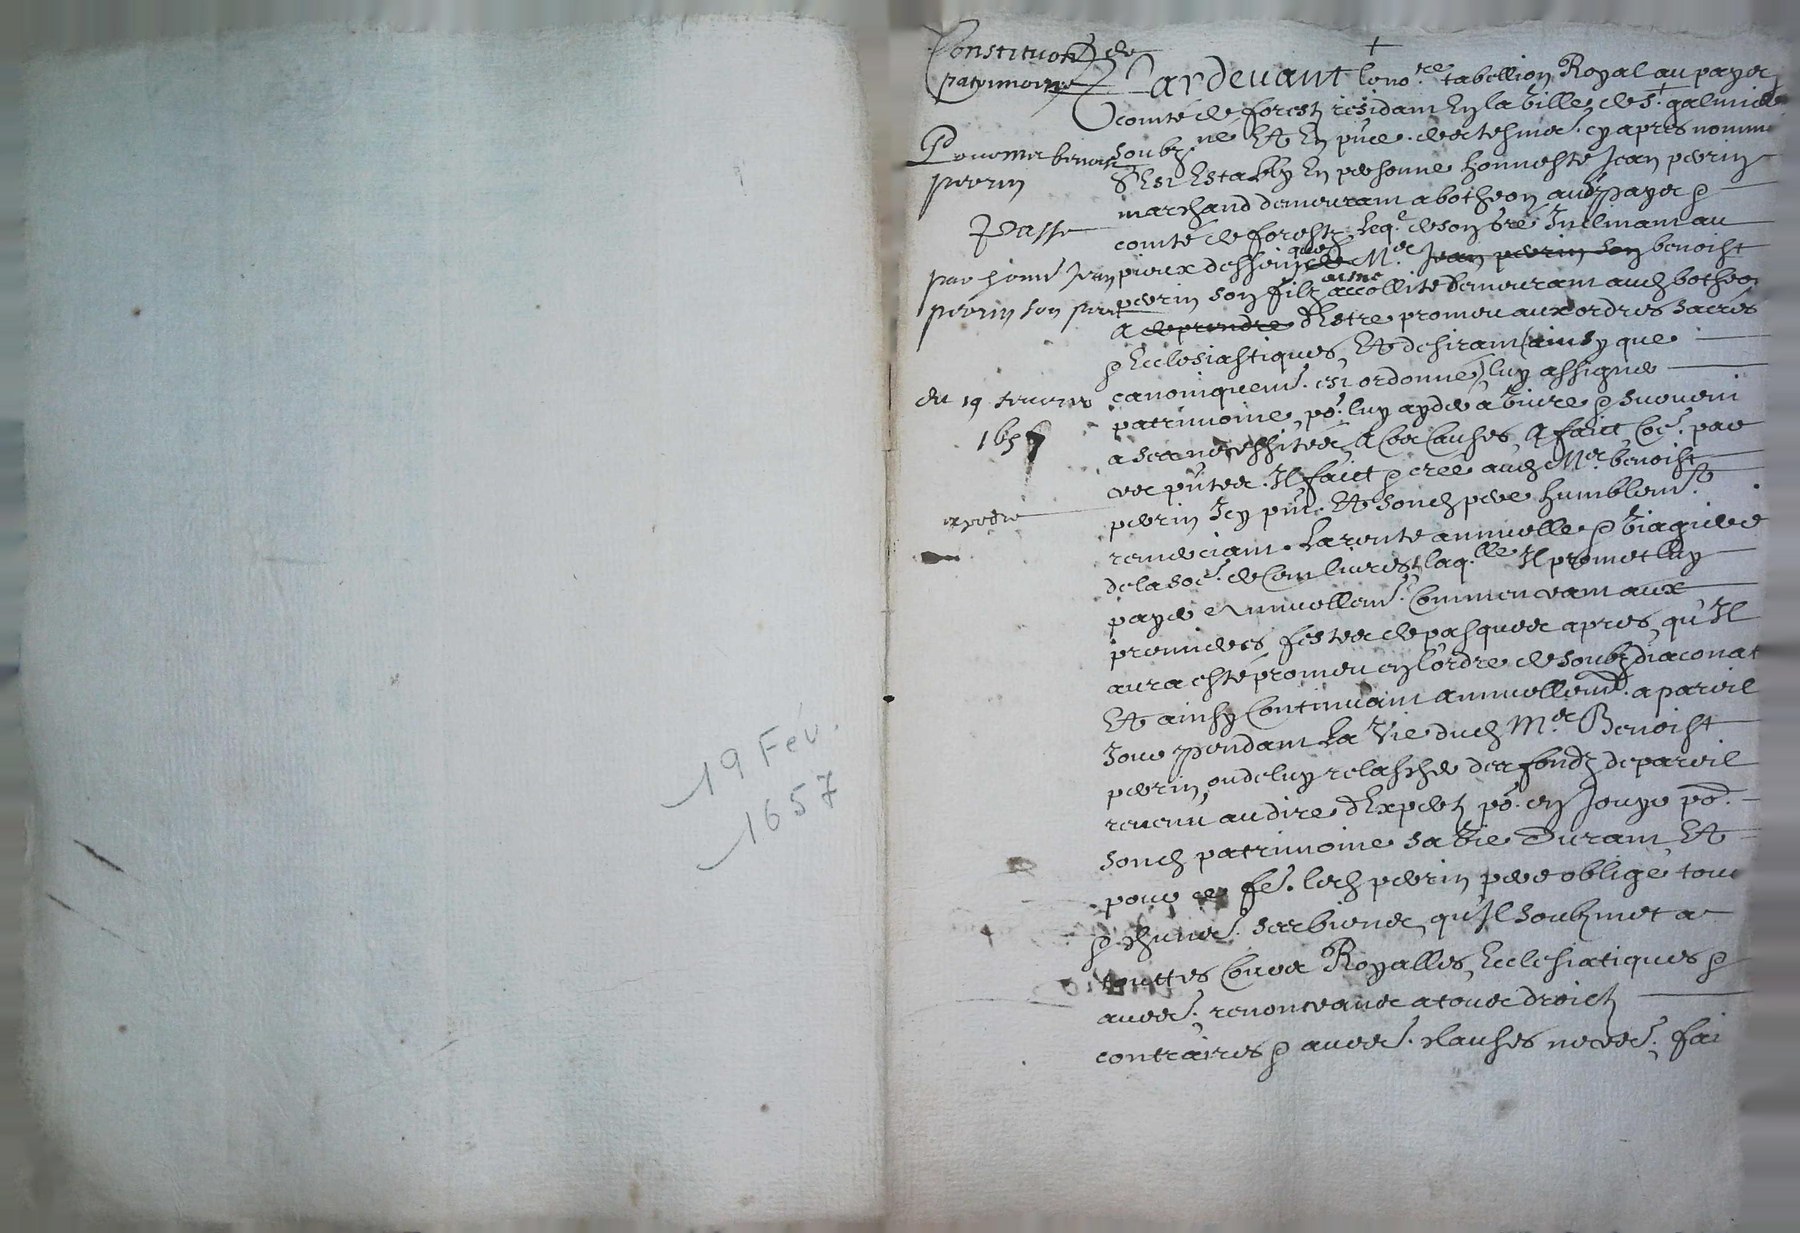 19 Fév.
1657
Constitution de
patrimoine
Pour Mre benoist
perrin
Passé
par honn. Jean
perrin son pere
du 19 feuvrier
1657
expedie
Pardevant le no.re tabellion Royal au payz &
comté de forestz residant en la ville de St. galmier
soubz.né Et En pnce. des tesmoz. cy apres nommé
S'Est Estably En personne honneste Jean perrin
marchand demeurant a botheon aud payz &
comté de forestz Leq.l de son gré Inclinant au
pieux dessein que Mre Jean perrin son benoist
perrin son filz accollite demeurant aud botheon
a de prendre d'Estre promeu aux ordres sacrés
& Ecclesiastiques, Et desirant (ainsy que
canoniquemt. est ordonné) luy assigner
patrimoine, po.r luy ayder a vivre & survenir
a ses necessitez A ces causes A faict
ces pntes. Il faict & cree aud Mre benoist
perrin Icy pnt. Et sond pere humblemt.
remerciant. La rente annuelle & viagiere
de la so.e de Cent livres, laq.lle Il promet luy
payer Annuellemt. Commencant aux
premieres festes de pasques apres, qu'Il
aura esté promeu en l'ordre de soubzdiaconat
Et ainsy Continuant annuellemt. a pareil
Jour pendant La Vie dud Mre Benoist
perrin, ou de luy relascher des fondz de pareil
revenu au dire d'Expertz po.r en Jouyr po.r
sond patrimoine sa vie Durant Et
pour ce fe. led perrin pere oblige tous
& chuns. ses biens, qu'Il soubzmet a
touttes Cours Royalles, Ecclesiatiques &
aultres. renonceans a tous droictz
contraires & aultres. clauses neces. fai